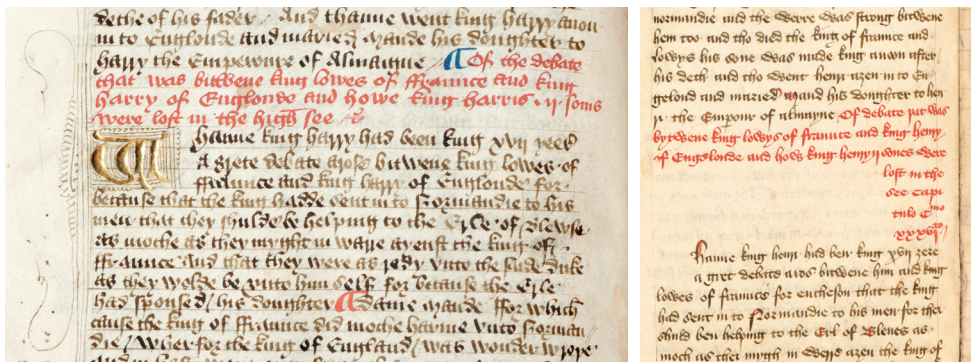 dethe of his fader / And thanne went king harry anon
in to Englonde and maried Maude his doughter to
harry the Emperoure of Almaigne / Of the debate
that was bitwene king lowes of ffraunce and king
harry of Englonde and howe king harris .ij. sonis
were lost in the high see
Whanne king harry had been king xvij yeer
a grete debate arose bitwene king lowes of
ffraunce and king harry of Englonde for
because that the king hadde sent in to Normandie to his
men that they shulde be helping to the Erle of Blewse
as moche as they myght in warre ayenst the king of
ffraunce And that they were as redy vnto the saide duke
as they wolde be vnto him self for because the Erle
had spoused / his doughter dame maude ffor which
cause the king of ffraunce did moche harme vnto Norman
die / Wherfor the king of England / was wonder wrope
normandie and the werre was strong bitwene
hem too and tho died the king of fraunce and
lowys his sone was made king anon after
his deth and tho went henri azen in to En-
gelond and maried maud his doughter to hen
ri the Emperour of almayne Of debate þat was
bytwene king lowys of fraunce and king henry
of Engelonde and how king henry ij sones were
lost in the
see Capi
tulo C mo
xxxvij
Whanne king henri had ben king xvij zere
a gret debate aros bitwene him and king
lowes of fraunces for encheson that the king
had sent in to Normandie to his men for thei
shuld ben helping to the Erl of Blenes as
moch as thei myzth in werre azen the king of